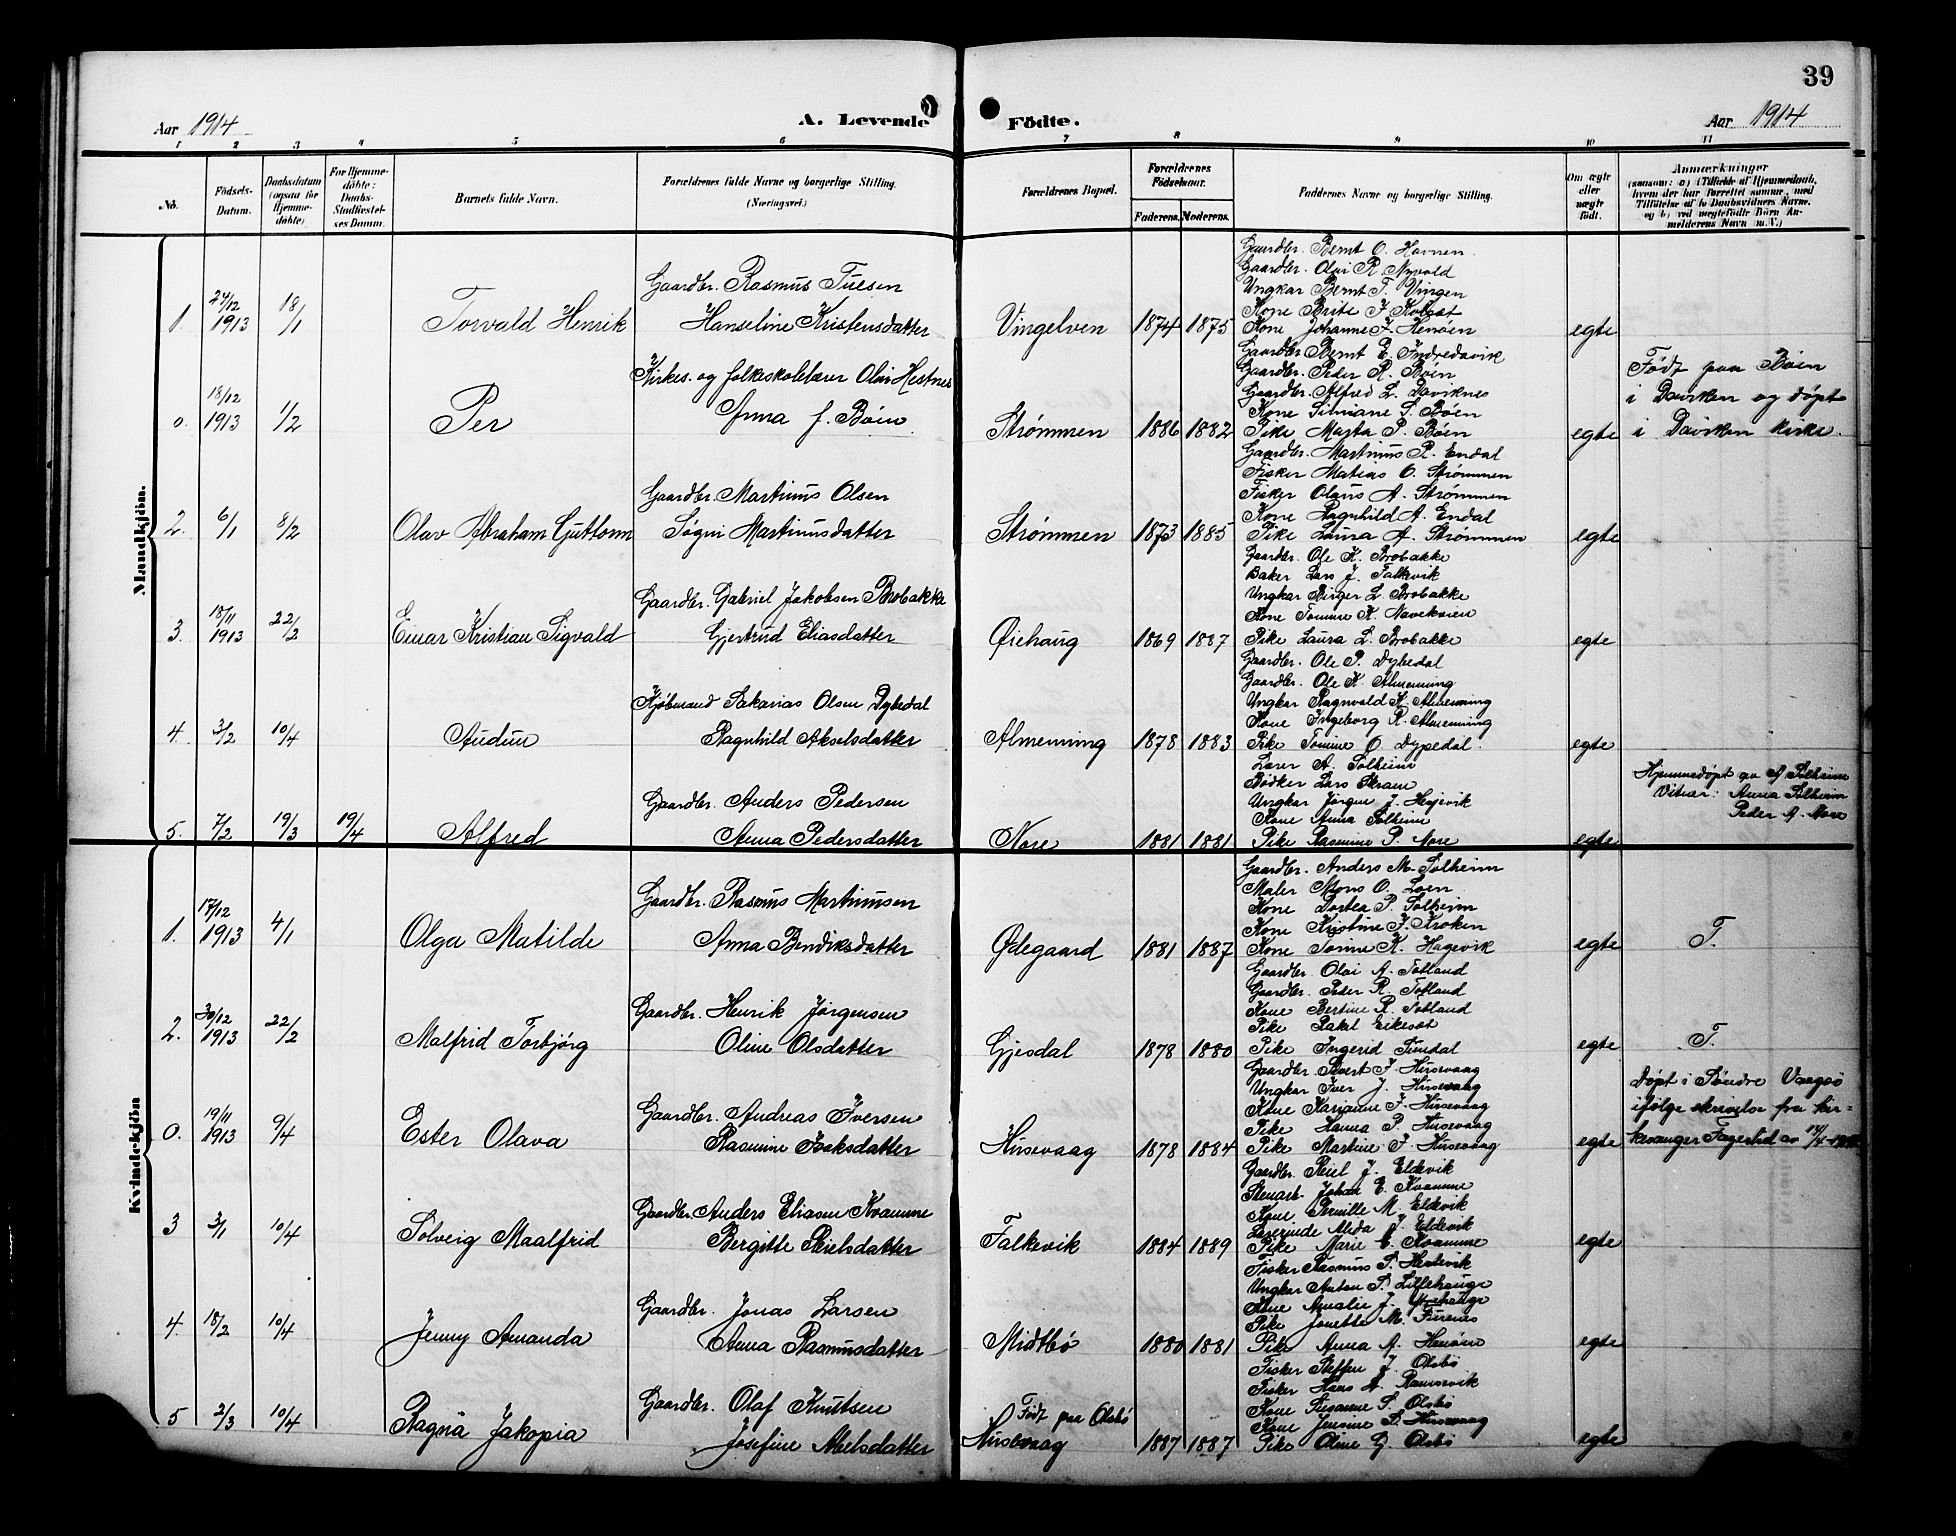 39
Aar 1914
A. Levende Födte.
Aar 1914
1 2 3 4 5 6 7 8 9 10 11
No.
Födsels-Datum.
Daabsdatum (ogsaa for Hjemmedöbte)
For Hjemmedöbte: Daabs-Stadfæstelses Datum.
Barnets fulde Navn.
Forældrenes fulde Navne og borgerlige Stilling. (Næringsvei.)
Forældrenes Bopæl.
Forældrenes Födselsaar.
Faderens. Moderens.
Faddernes Navne og borgerlige Stilling.
Om ægte eller uægte födt.
Anmærkninger
(saasom: a) i Tilfælde af Hjemmedaab, hvem der har forrettet samme, med Tilföielse af to Daabsvidners Navne, og b) ved uægtefödte Börn Anmelderens Navn m. V.)
Mandkjön.
1. 27/12 1913 18/1 Torvald Henrik
Gaardbr. Rasmus Tuesen
Hanseline Kristensdatter
Vingelven 1874 1875
Gaardbr. Bernt O. Havnen
Gaardbr. Olai R. Nyvold
Ungkar Bernt T. Vingen
Kone Brite J. Kolset
Kone Johanne J. Henöen
egte
0. 18/12 1913 1/2 Per
Kirkes. og folkeskolelærer Olai Hestnes
Anna f. Böen
Strømmen 1886 1882
Gaardbr. Bernt E. Indredavik
Gaardbr. Peder R. Böen
Gaardbr. Alfred L. Daviknes
Kone Silviane S. Böen
Pike Marta P. Böen
egte
Født paa Böen
i Daviken og døpt
i Daviken kirke.
2. 6/1 8/2 Olav Abraham Guttorm
Gaardbr. Martinus Olsen
Søgni Martinusdatter
Strømmen 1873 1885
Gaardbr. Martinus R. Endal
Fisker Matias O. Strømmen
Fisker Olaus A. Strømmen
Kone Ragnhild A. Endal
Pike Laura A. Strømmen
egte
3. 18/11 1913 22/2 Einar Kristian Sigvald
Gaardbr. Gabriel Jakobsen Brobakke
Gjertrud Eliasdatter
Øiehaug 1869 1887
Gaardbr. Ole K. Brobakke
Baker Lars J. Falkevik
Ungkar Birger L. Brobakke
Kone Tomine K. Navekvien
Pike Laura L. Brobakke
egte
4. 3/2 10/4 Audun
Kjøbmand Sakarias Olsen Dybedal
Ragnhild Akselsdatter
Almenning 1878 1883
Gaardbr. Ole P. Dybedal
Gaardbr. Ole K. Almenning
Ungkar Ragnvald K. Almenning
Kone Ingeborg R. Almenning
Pike Tomine O. Dypedal.
egte
5. 7/2 19/3 19/4 Alfred
Gaardbr. Anders Pedersen
Anna Pedersdatter
Nore 1881 1881
Lærer A. Solheim
Bødker Lars Skram
Ungkar Jørgen J. Hesjevik
Kone Anna Solheim
Pike Rasmine P. Nore
egte
Hjemmedøpt av A Solheim
Vitner: Anna Solheim
Peder A. Nore
Kvindekjön
1. 17/12 1913 4/1 Olga Matilde
Gaardbr. Rasmus Martinusen
Anna Bendiksdatter
Ødegaard 1881 1887
Gaardbr. Anders M. Solheim
Maler Mons O. Loen
Kone Dortea P. Solheim
Kone Kristine J. Kroken
Kone Tomine K. Hagevik
egte T.
2. 30/12 1913 22/2 Malfrid Torbjörg
Gaardbr. Henrik Jørgensen
Oline Olsdatter
Gjesdal 1878 1880
Gaardbr. Olai A. Totland
Gaardbr. Peder R. Totland
Kone Bertine R. Totland
Pike Rakel Eikeset
Pike Ingerid Sundal
egte T.
0. 19/11 1913 9/4 Ester Olava
Gaardbr. Andreas Iversen
Rasmine Isaksdatter
Husevaag 1878 1884
Gaardbr. Sivert J. Husevaag
Ungkar Iver J. Husevaag
Kone Karianne J. Husevaag
Pike Hanna P. Husevaag
Pike Martine J. Husevaag
egte
døpt i Søndre Vaagsö
ifølge skrivelse fra kir-
kesanger Fagerlid av 14/4-1914
3 3/1 10/4 Solveig Maalfrid
Gaardbr. Anders Eliasen Kvamme
Bergitte Reielsdatter
Falkevik 1884 1889
Gaardbr. Reiel J. Eldevik
Stenarb. Johan E. Kvamme
Kone Pernille M. Eldevik
Lærerinde Alida J. Eldevik
Pike Marie E. Kvamme
egte
4. 18/2 10/4 Jenny Amanda
Gaardbr. Jonas Larsen
Anna Rasmusdatter
Midtbö 1880 1881
Fisker Rasmus S. Hestevik
Ungkar Anton S. Lillehauge
Kone Amalie J.
Pike Jonette M. Furenes
Pike Anna A. Henöen
egte
5 2/3 10/4 Ragna Jakopia
Gaardbr. Olaf Knutsen
Josefine Abelsdatter
Født paa Olsbö
Husevaag 1887 1887
Fisker Steffen J. Olsbö
Fisker Hans A. Ramsevik
Kone Susanne S. Olsbö
Kone Jensine S. Husevaag
Pike Oline G. Olsbö
egte